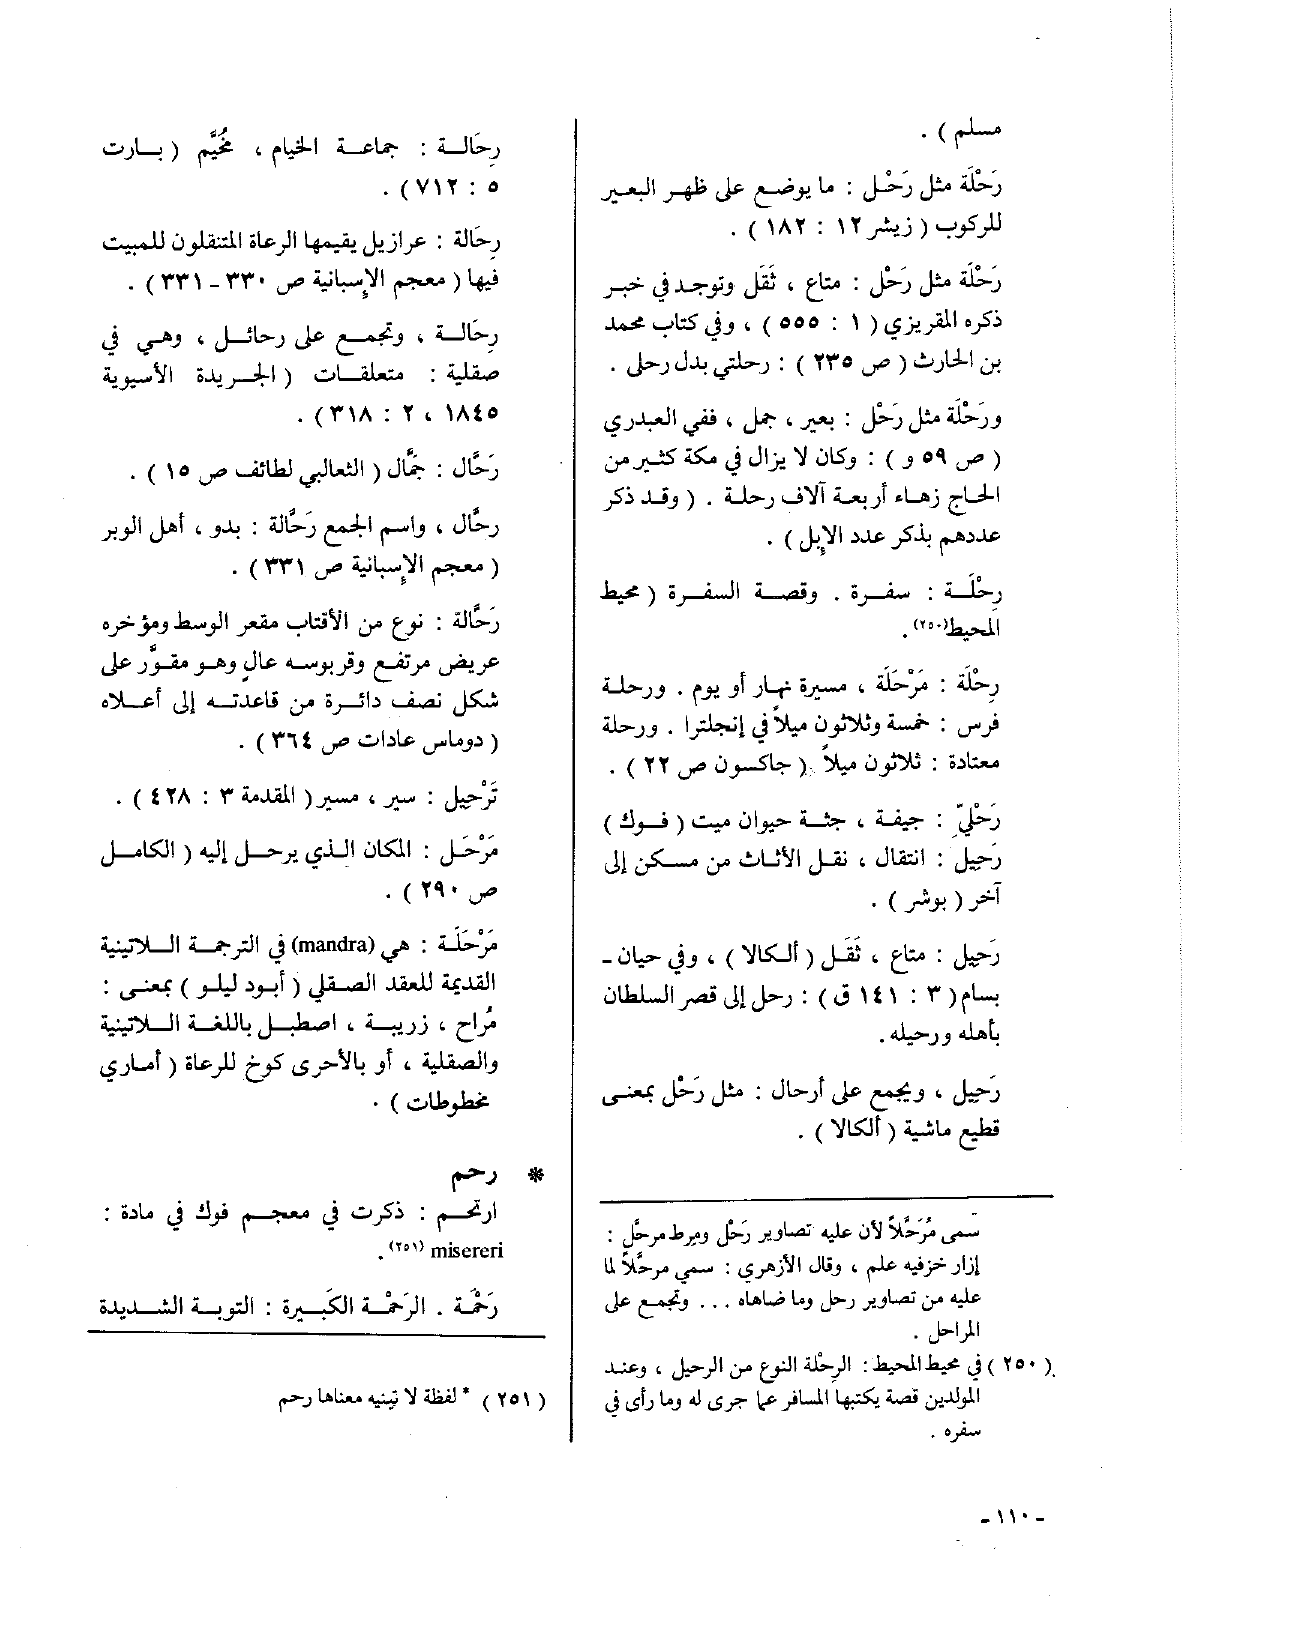 مسلم ) .
رَحْلَة مثل رَحْل : ما يوضع على ظهر البعير
للركوب ( زيشر ١٢ : ١٨٢ ) .
رَحْلَة مثل رَحْل : متاع ، ثَقَل وتوجد في خبر
ذكره المقريزي ( ١ : ٥٥٥ ) ، وفي كتاب محمد
بن الحارث ( ص ٢٣٥ ) : رحلتي بدل رحل .
ورَحْلَة مثل رَحْل : بعير ، جمل ، ففي العبدري
( ص ٥٩ و ) : وكان لا يزال في مكة كثير من
الحاج زهاء أربعة آلاف رحلة . ( وقد ذكر
عددهم بذكر عدد الإبل ) .
رِحْلَة : سفرة . وقصة السفرة ( محيط
المحيط(٢٥٠) .
رِحْلَة : مَرْحَلَة ، مسيرة نهار أو يوم . ورحلة
فرس : خمسة وثلاثون ميلاً في إنجلترا . ورحلة
معتادة : ثلاثون ميلاً ( جاكسون ص ٢٢ ) .
رَحْلِيّ : جيفة ، جثة حيوان ميت ( فوك )
رَحِيل : انتقال ، نقل الأثاث من مسكن إلى
آخر ( بوشر ) .
رَحِيل : متاع ، ثَقَل ( ألكالا ) ، وفي حيان -
بسام ( ٣ : ١٤١ ق ) : رحل إلى قصر السلطان
بأهله ورحيله .
رَحِيل ، ويجمع على أرحال : مثل رَحْل بمعنى
قطيع ماشية ( ألكالا ) .
سمى مُرَحَّلاً لأن عليه تصاوير رَحْل ومرط مرحَّل :
إزار خزفيه علم ، وقال الأزهري : سمي مرحَّلاً لما
عليه من تصاوير رحل وما ضاهاه ... وتجمع على
المراحل .
( ٢٥٠ ) في محيط المحيط : الرِحْلة النوع من الرحيل ، وعند
المولدين قصة يكتبها المسافر عما جرى له وما رأى في
سفره .
رِحَالة : جماعة الخيام ، مُخَيَّم ( بارت
٥ : ٧١٢ ) .
رِحَالة : عرازيل يقيمها الرعاة المتنقلون للمبيت
فيها ( معجم الإسبانية ص ٣٣٠ - ٣٣١ ) .
رِحَالة ، وتجمع على رحائل ، وهي في
صقلية : متعلقات ( الجريدة الآسيوية
١٨٤٥ ، ٢ : ٣١٨ ) .
رَحَّال : جَّمال ( الثعالبي لطائف ص ١٥ ) .
رحَّال ، واسم الجمع رَحَّالة : بدو ، أهل الوبر
( معجم الإسبانية ص ٣٣١ ) .
رَحَّالة : نوع من الأقتاب مقعر الوسط ومؤخره
عريض مرتفع وقربوسه عالٍ وهو مقوَّر على
شكل نصف دائرة من قاعدته إلى أعلاه
( دوماس عادات ص ٣٦٤ ) .
تَرْحِيل : سير ، مسير ( المقدمة ٣ : ٤٢٨ ) .
مَرْحَل : المكان الذي يرحل إليه ( الكامل
ص ٢٩٠ ) .
مَرْحَلَة : هي (mandra) في الترجمة اللاتينية
القديمة للعقد الصقلي ( أبود ليلو ) بمعنى :
مُراح ، زريبة ، اصطبل باللغة اللاتينية
والصقلية ، أو بالأحرى كوخ للرعاة ( أماري
مخطوطات ) .
* رحم
ارتحم : ذكرت في معجم فوك في مادة :
misereri (٢٥١) .
رَحْمَة . الرَحْمَة الكَبِيرة : التوبة الشديدة
( ٢٥١ ) * لفظة لاتينيه معناها رحم
- ١١٠ -